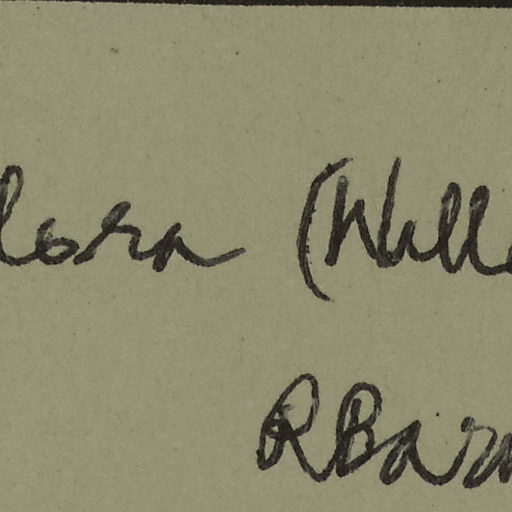 lora (Wall
RBar